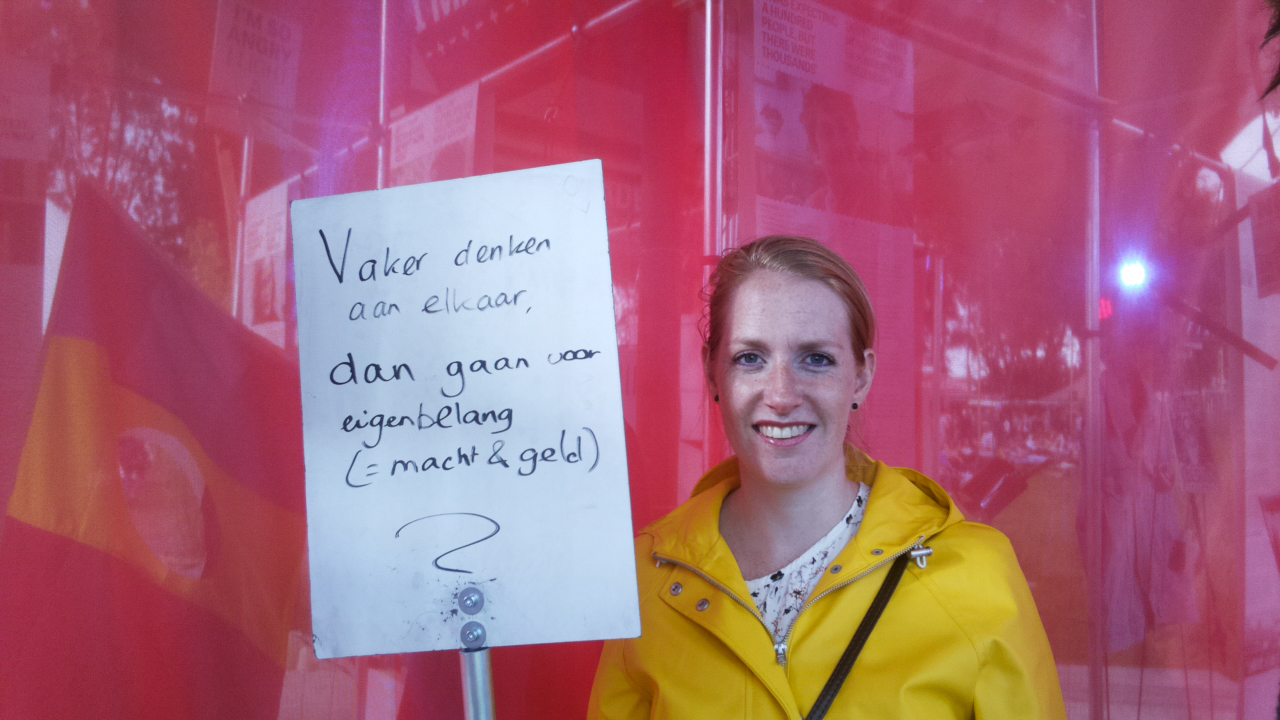 Vaker denken
aan elkaar,
dan gaan voor
eigenbelang
(= macht & geld)
?
I'M SO
ANGRY
WAS EXPECTING
A HUNDRED
PEOPLE, BUT
THERE WERE
THOUSANDS